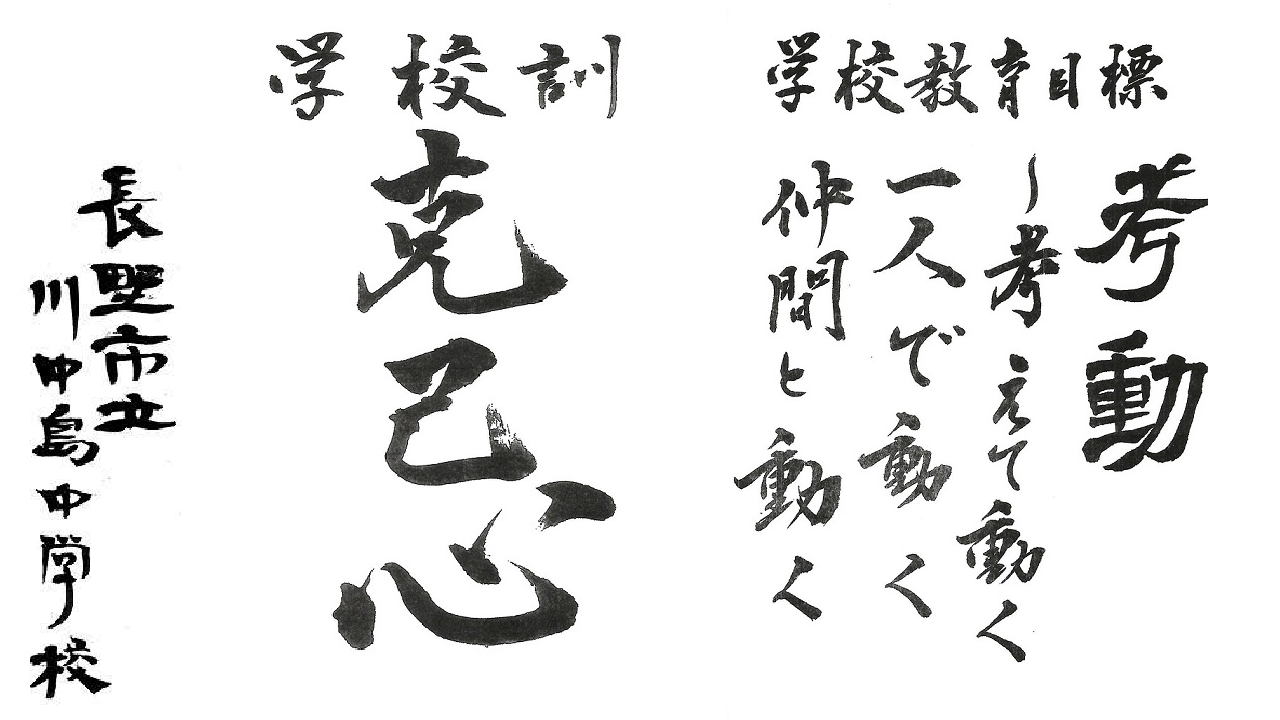 学校教育目標
考動
〜考えて動く
一人で動く
仲間と動く
学校訓
克己心
長野市立
川中島中学校